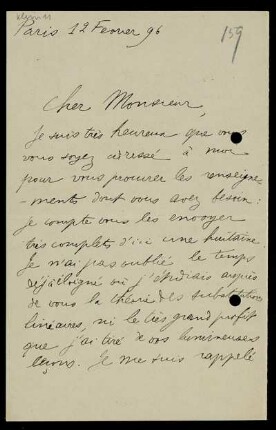 Paris 12 Fevrier 96
159
Cher Monsieur,
Je suis très heureux que vous
vous soyez adressé à moi
pour vous procurer les renseigne-
-ments dont vous avez besoin :
je compte vous les envoyer
très complets d'ici une huitaine.
Je n'ai pas oublié le temps
déjà éloigné où j'étudiais auprès
de vous la théorie des substitutions
linéaires, ni le très grand profit
que j'ai tiré de vos lumineuses
leçons. Je me suis rappelé